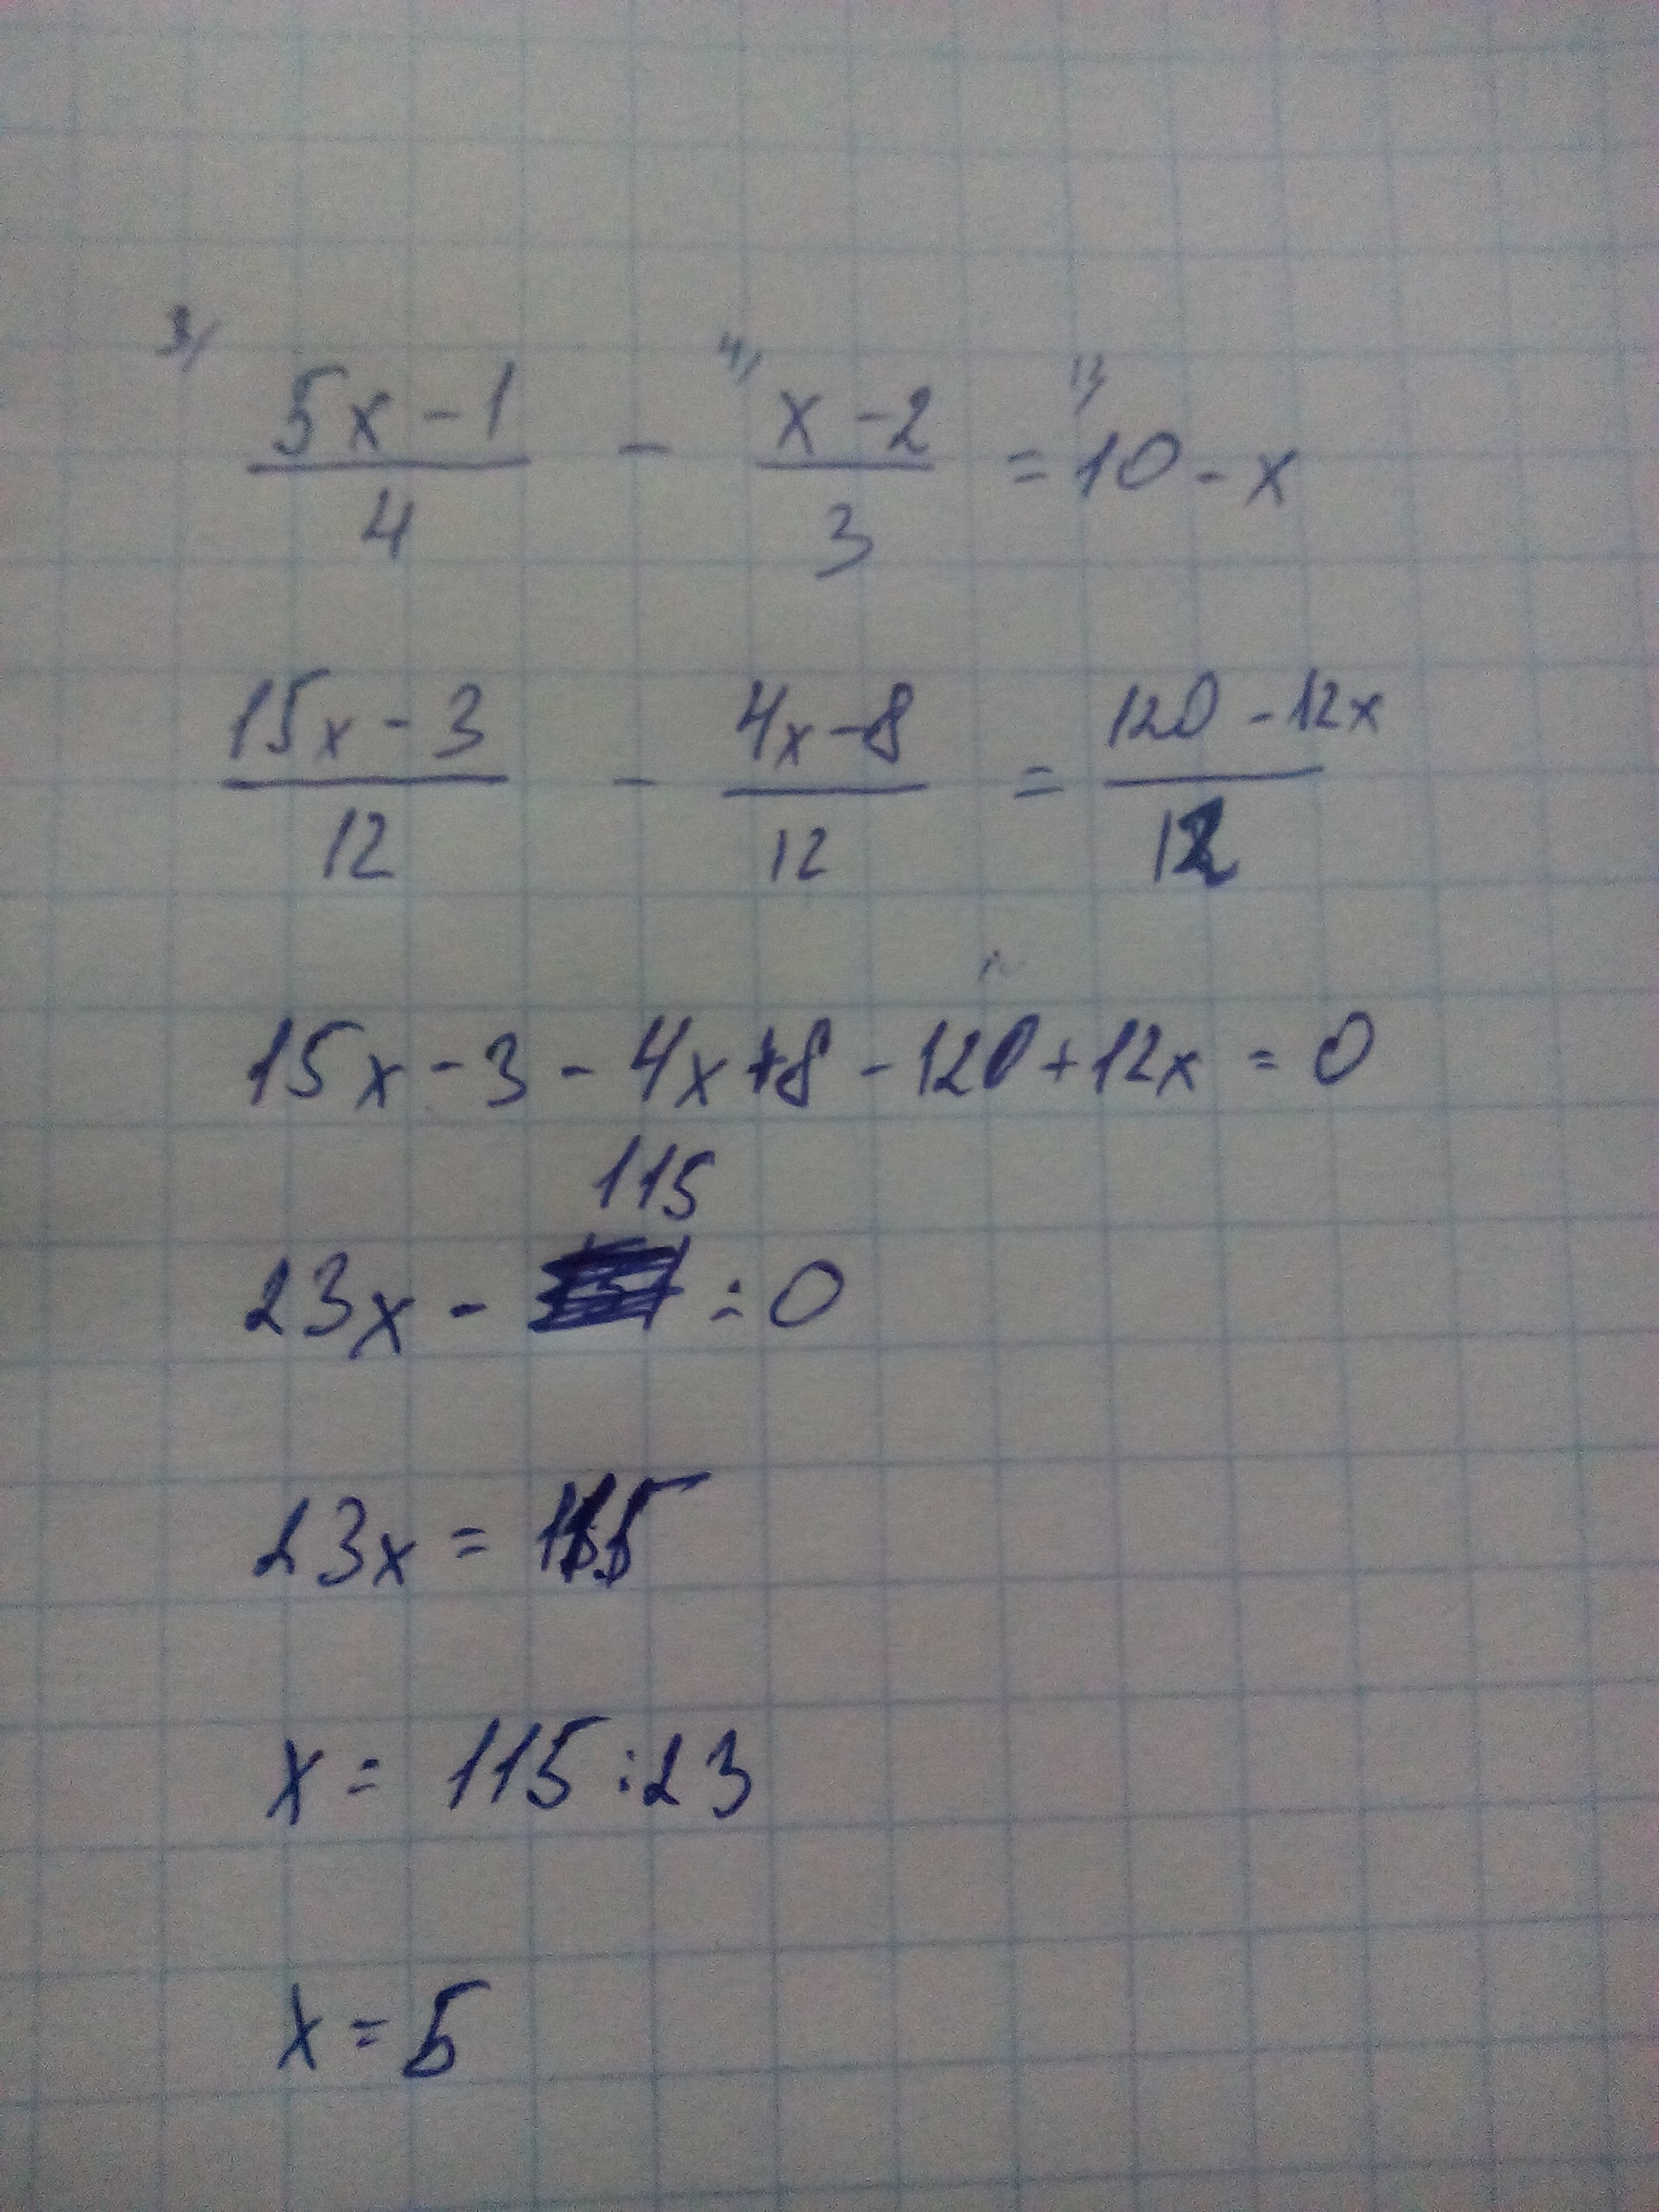 3) 4) 12)
5x-1 / 4 - x-2 / 3 = 10-x
15x-3 / 12 - 4x-8 / 12 = 120-12x / 12
15x-3-4x+8-120+12x=0
115
23x- =0
23x=115
x=115:23
x=5